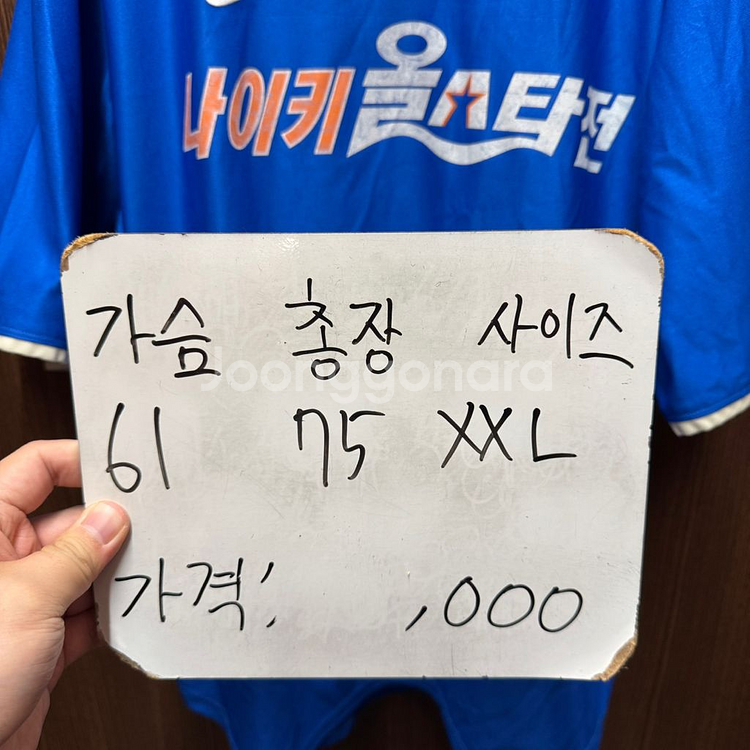 나이키 올스타전
가슴 총장 사이즈
Joonggonara
61 75 XXL
가격: ,000